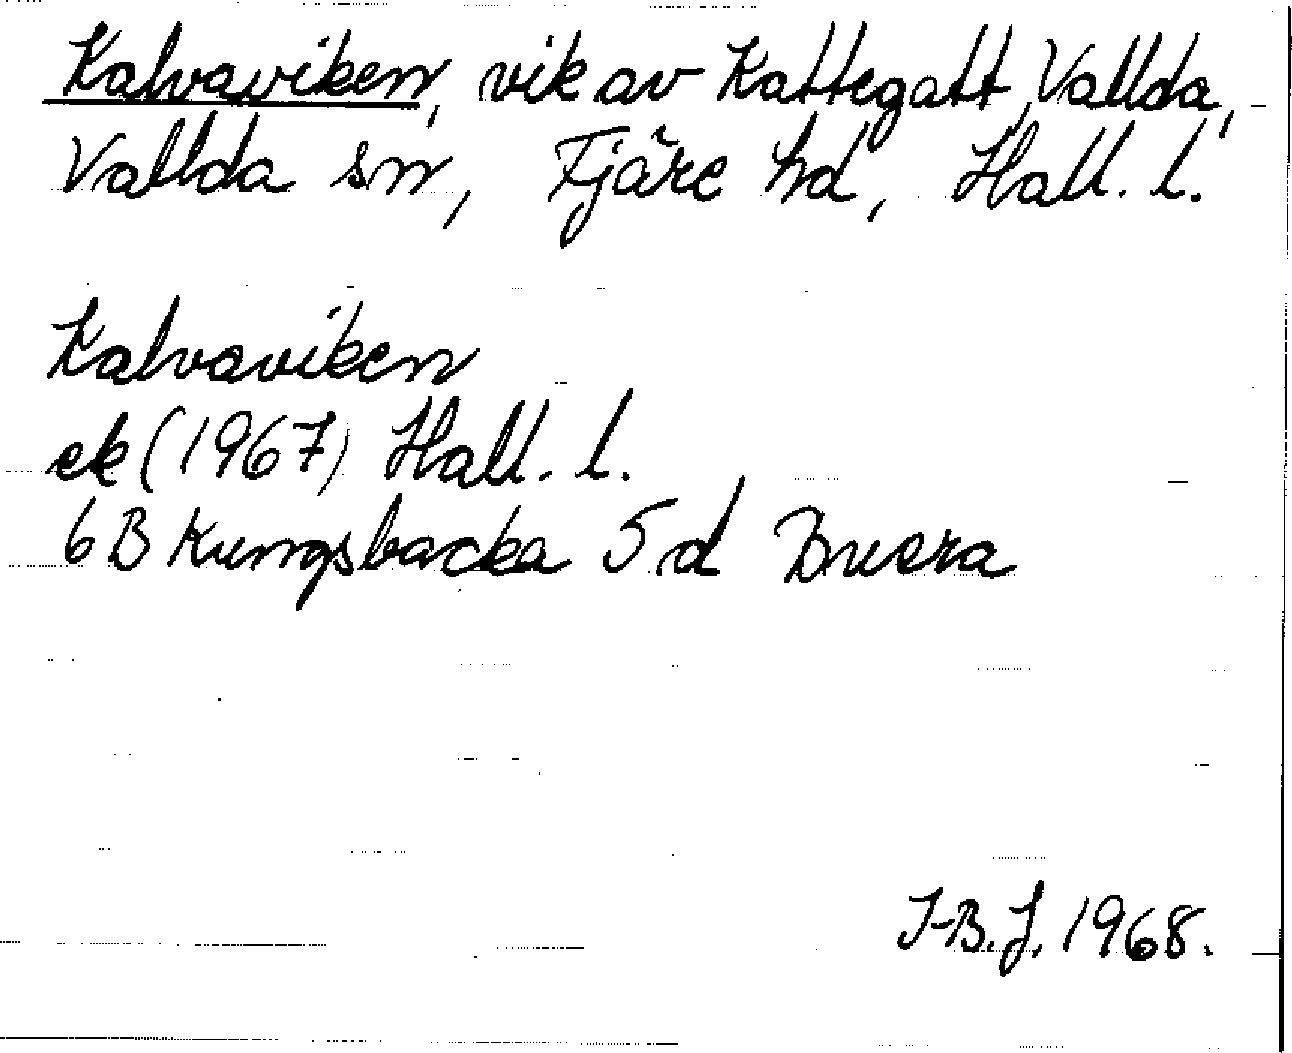 Kalvaviken, vik av Kattegatt, Vallda,
Vallda sn, Fjäre hd, Hall. l.
Kalvaviken
ek (1967) Hall. l.
6 B Kungsbacka 5 d Buera
I-B. J. 1968.